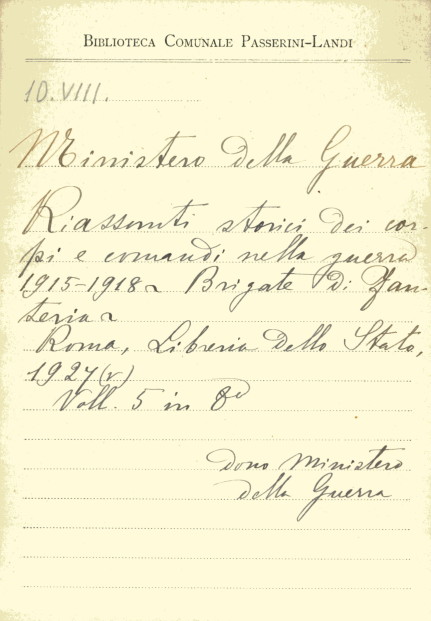 BIBLIOTECA COMUNALE PASSERINI-LANDI
10.VIII.
Ministero della Guerra
Riassunti storici dei cor-
pi e comandi nella guerra
1915-1918 ~ Brigate di Fan-
teria ~
Roma, Libreria dello Stato,
1927 (v)
Voll. 5 in 8º
dono Ministero
della Guerra